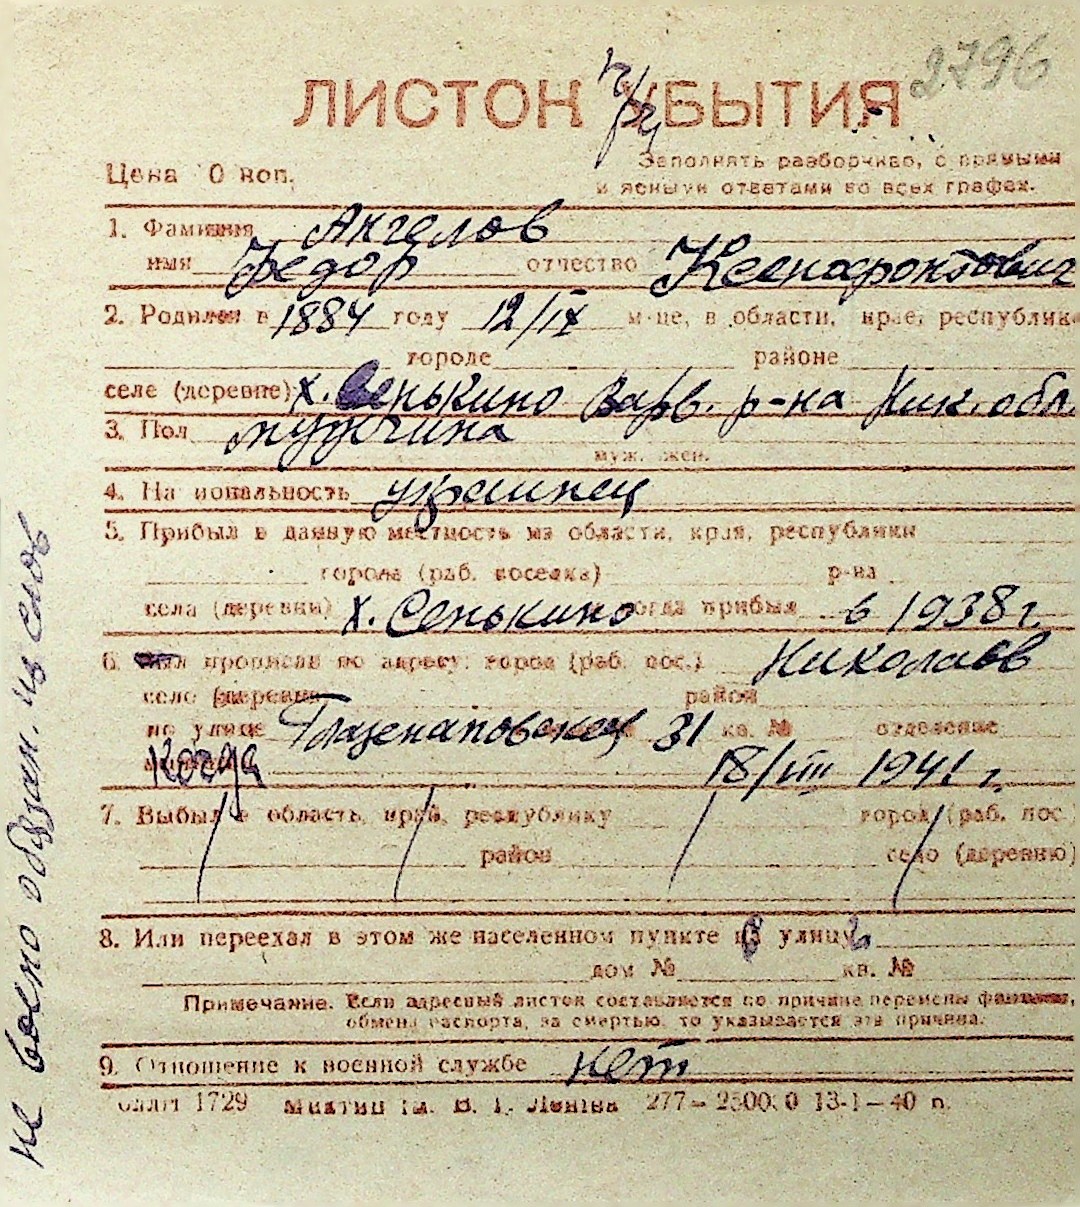 2796
ЛИСТОК УБЫТИЯ
Цена 0 коп.
Заполнять разборчиво, с прямыми
и ясными ответами во всех графах.
1. Фамилия Ангелов
имя Федор отчество Ксенофонтович
2. Родился в 1884 году 12/IX м-це, в области, крае, республике
городе районе
селе (деревне) х. Сенькино Варв. р-на Ник. обл.
3. Пол мущина
муж. жен.
4. Национальность украинец
5. Прибыл в данную местность из области, края, республики
города (раб. поселка) р-на
села (деревни) х. Сенькино когда прибыл в 1938 г.
6. прописан по адресу: город (раб. пос.) Николаев
село (деревня район
по улице Глазенаповской 31 кв. № отделение
Когда 18/VIII 1941 г.
7. Выбыл в область, край, республику город (раб. пос.)
район село (деревню)
8. Или переехал в этом же населенном пункте улицу
дом № кв. №
Примечание. Если адресный листок составляется по причине перемены фамилии,
обмена паспорта, за смертью, то указывается эта причина.
9. Отношение к военной службе нет
1729 В. І. Леніна 277 — 2500.0 13-1—40 п.
не военно обязан. из слов